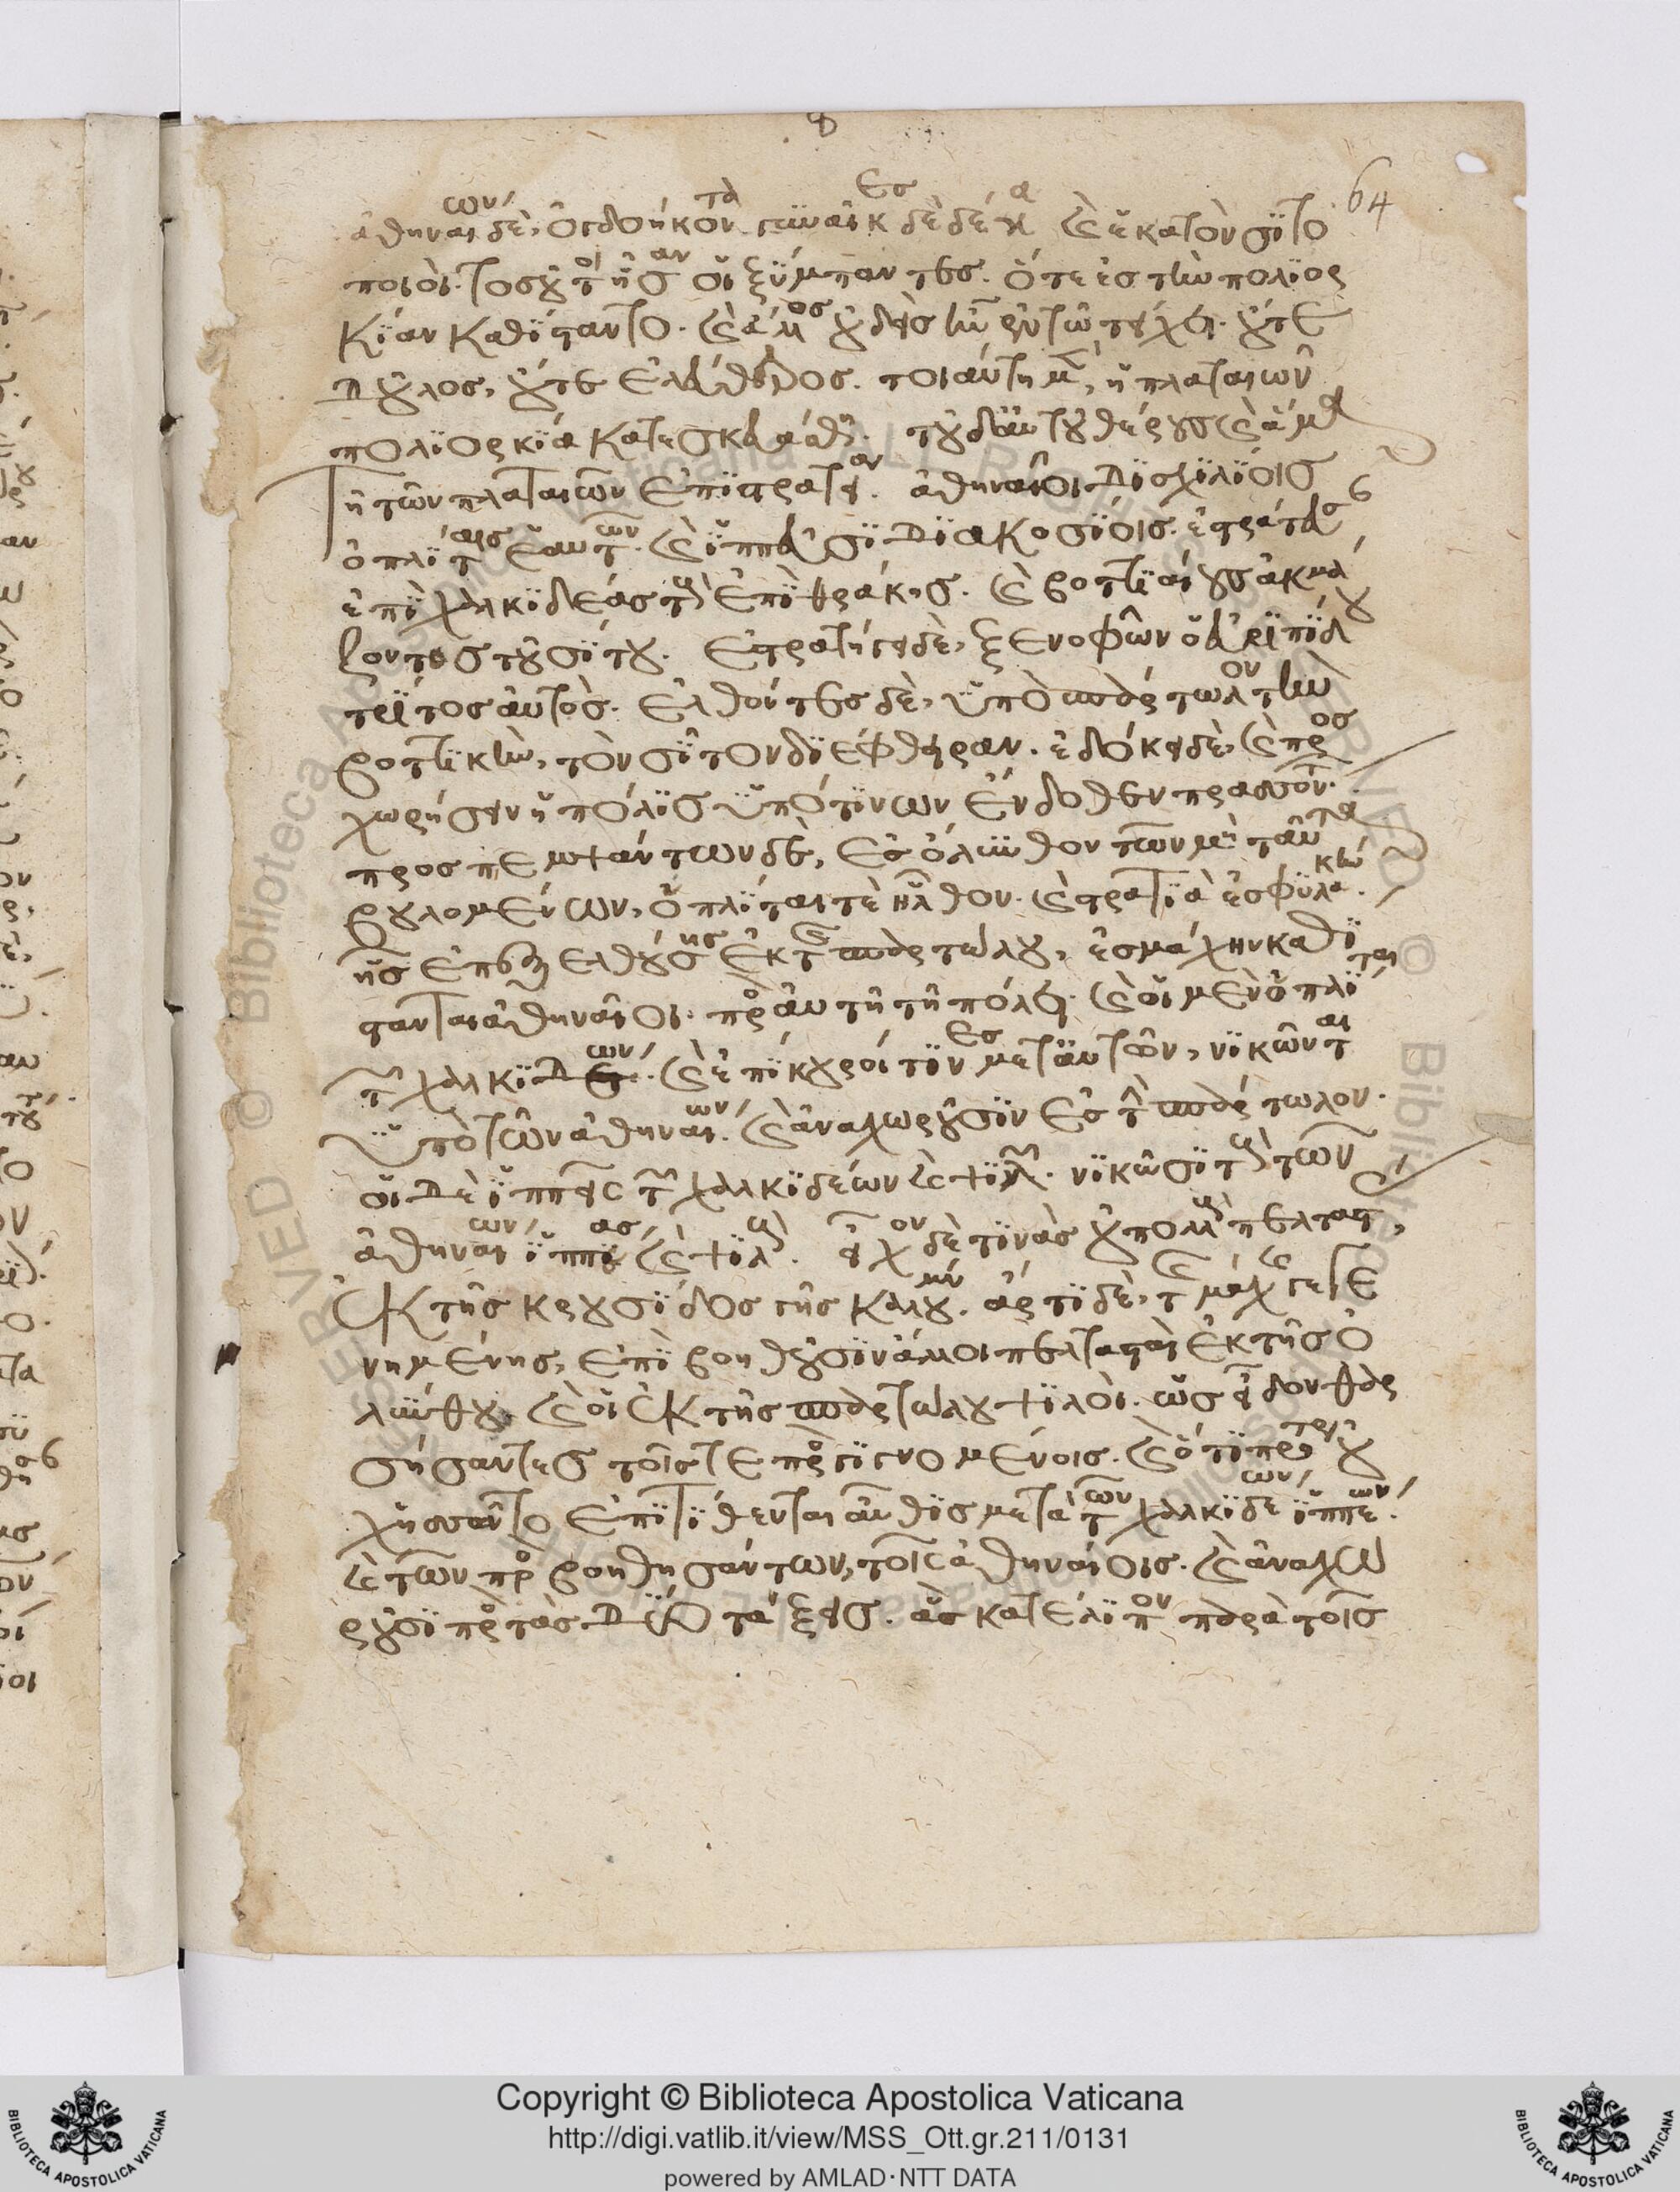 64
ἀθηναίων δὲ, ὀγδοήκοντα. γυναῖκες δὲ δέκα καὶ ἑκατὸν σιτο
ποιοί. τοσοῦτοι ἦσαν οἱ ξύμπαντες. ὅτε ἐς τὴν πολιορ
κίαν καθίσταντο. καὶ ἄλλος οὐδεὶς ἦν ἐν τῷ τείχει. οὔτε
δοῦλος, οὔτε ἐλεύθερος. τοιαύτη μὲν, ἡ πλαταιῶν
πολιορκία κατεσκευάσθη. τοῦ δ' αὐτοῦ θέρους καὶ ἅμα
τῆ τῶν πλαταιῶν ἐπιστρατείαν. ἀθηναῖοι δισχιλίοις
ὁπλίταις ἑαυτῶν. καὶ ἱππεῦσι διακοσίοις. ἐστράτευσαν
ἐπὶ χαλκιδέας τοὺς ἐπὶ θράκης. καὶ βοττιαίους ἀκμά
ζοντος τοῦ σίτου. ἐστρατήγει δὲ, ξενοφῶν ὁ εὐριπίδου
τρίτος αὐτός. ἐλθόντες δὲ, ὑπὸ σπάρτωλον τὴν
βοττικὴν, τὸν σῖτον διέφθειραν. ἐδόκει δὲ, καὶ προσ
χωρήσειν ἡ πόλις ὑπό τινων ἔνδοθεν πρασσόντων.
προσπεμψάντων δὲ, ἐς ὄλυνθον τῶν μὴ ταῦτα
βουλομένων, ὁπλῖταί τε ἦλθον. καὶ στρατιὰ ἐς φυλακήν.
ἧς ἐπεξελθούσης ἐκ τῆς σπαρτώλου, ἐς μάχην καθί
στανται ἀθηναῖοι. πρὸς αὐτῆ τῆ πόλει. καὶ οἱ μὲν ὁπλῖται
τῶν χαλκιδέων. καὶ ἐπίκουροί τινες μετ' αὐτῶν, νικῶνται
ὑπὸ τῶν ἀθηναίων. καὶ ἀναχωροῦσιν ἐς τὴν σπάρτωλον.
οἱ δὲ ἱππεῖς τῶν χαλκιδέων καὶ ψιλοὶ. νικῶσι τοὺς τῶν
ἀθηναίων ἱππέας καὶ ψιλούς. εἶχον δὲ τινὰς οὐ πολλοὺς πελταστὰς,
ἐκ τῆς κρουσίδος γῆς καλουμένης. ἄρτι δὲ, τῆς μάχης γεγε
νημένης, ἐπιβοηθοῦσιν ἄλλοι πελτασταὶ ἐκ τῆς ὀ
λύνθου. καὶ οἱ ἐκ τῆς σπαρτώλου ψιλοί. ὡς εἶδον θαρ
σήσαντες τοῖς τε προσγιγνομένοις. καὶ ὅτι πρότερον οὐχ
ἡσσῶντο ἐπιτίθενται αὖθις μετὰ τῶν χαλκιδέων ἱππέων.
καὶ τῶν προσβοηθησάντων, τοῖς ἀθηναίοις. καὶ ἀναχω
ροῦσι πρὸς τὰς δύο τάξεις. ἃς κατέλιπον παρὰ τοῖς
Copyright © Biblioteca Apostolica Vaticana
http://digi.vatlib.it/view/MSS_Ott.gr.211/0131
powered by AMLAD·NTT DATA